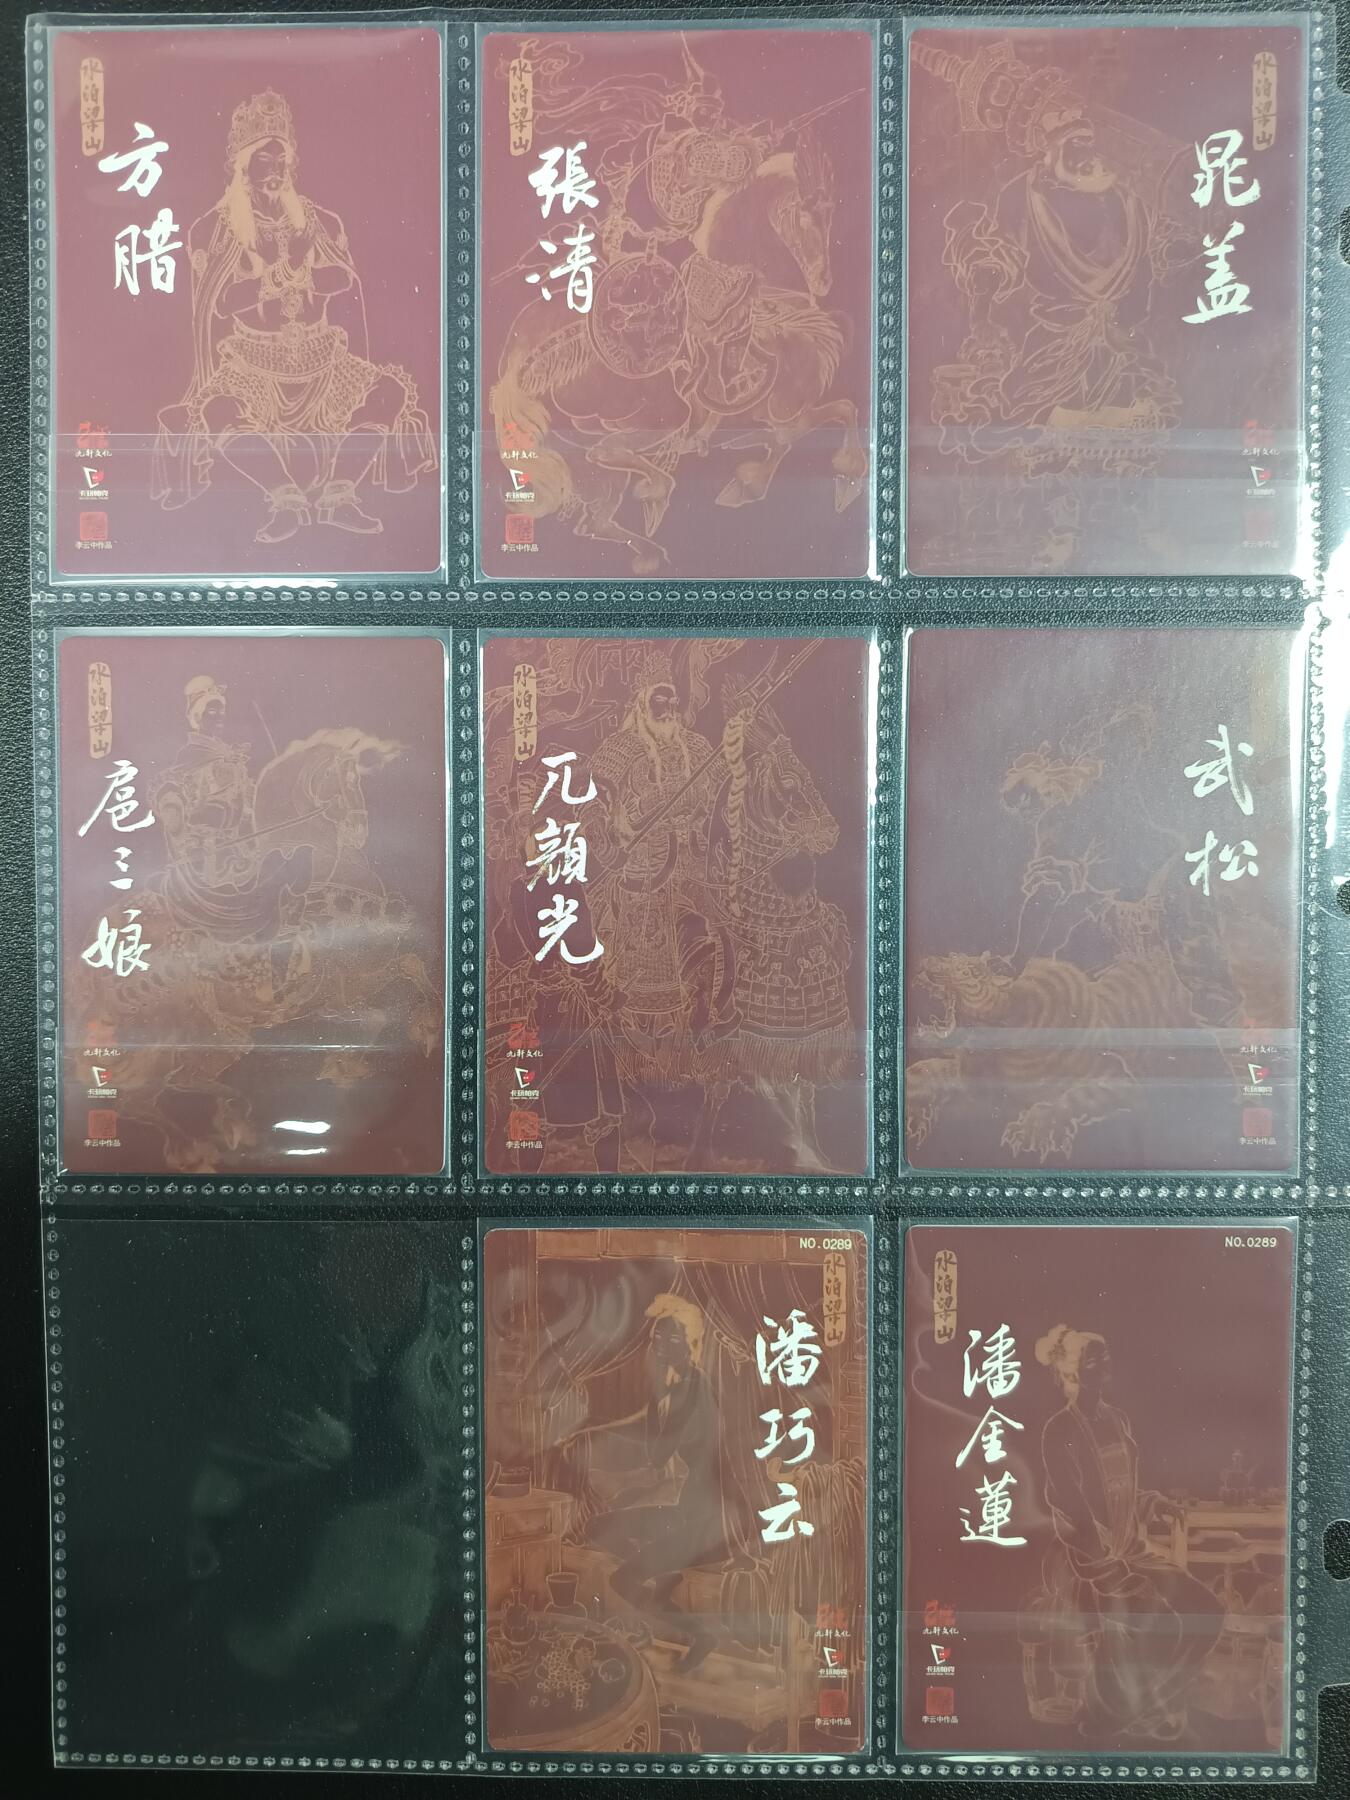 水泊梁山
方腊
九轩文化
卡玩帕克
李云中作品
水泊梁山
張清
九轩文化
卡玩帕克
李云中作品
水泊梁山
晁盖
九轩文化
卡玩帕克
李云中作品
水泊梁山
扈三娘
九轩文化
卡玩帕克
李云中作品
水泊梁山
兀顔光
九轩文化
卡玩帕克
李云中作品
武松
九轩文化
卡玩帕克
李云中作品
NO.0289
水泊梁山
潘巧云
九轩文化
卡玩帕克
李云中作品
NO.0289
水泊梁山
潘金蓮
九轩文化
卡玩帕克
李云中作品